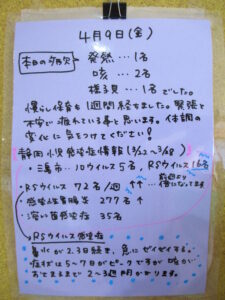 4月9日(金)
本日の欠席 発熱…1名
咳…2名
様子見…1名でした。
慣らし保育も1週間経ちました。緊張と
不安で疲れている事と思います。体調の
変化に気をつけてください!
静岡小児感染症情報(3/22~3/28)
・三島市…ロウイルス5名、RSウイルス16名
・RSウイルス 72名/週 ↑↑
・感染性胃腸炎 277名 ↑
・溶レン菌感染症 35名
RSウイルス感染症
鼻水が2.3日続き、急にゼイゼイする。
症状は5~7日がピークですが
おさまるまで2~3週間かかります。